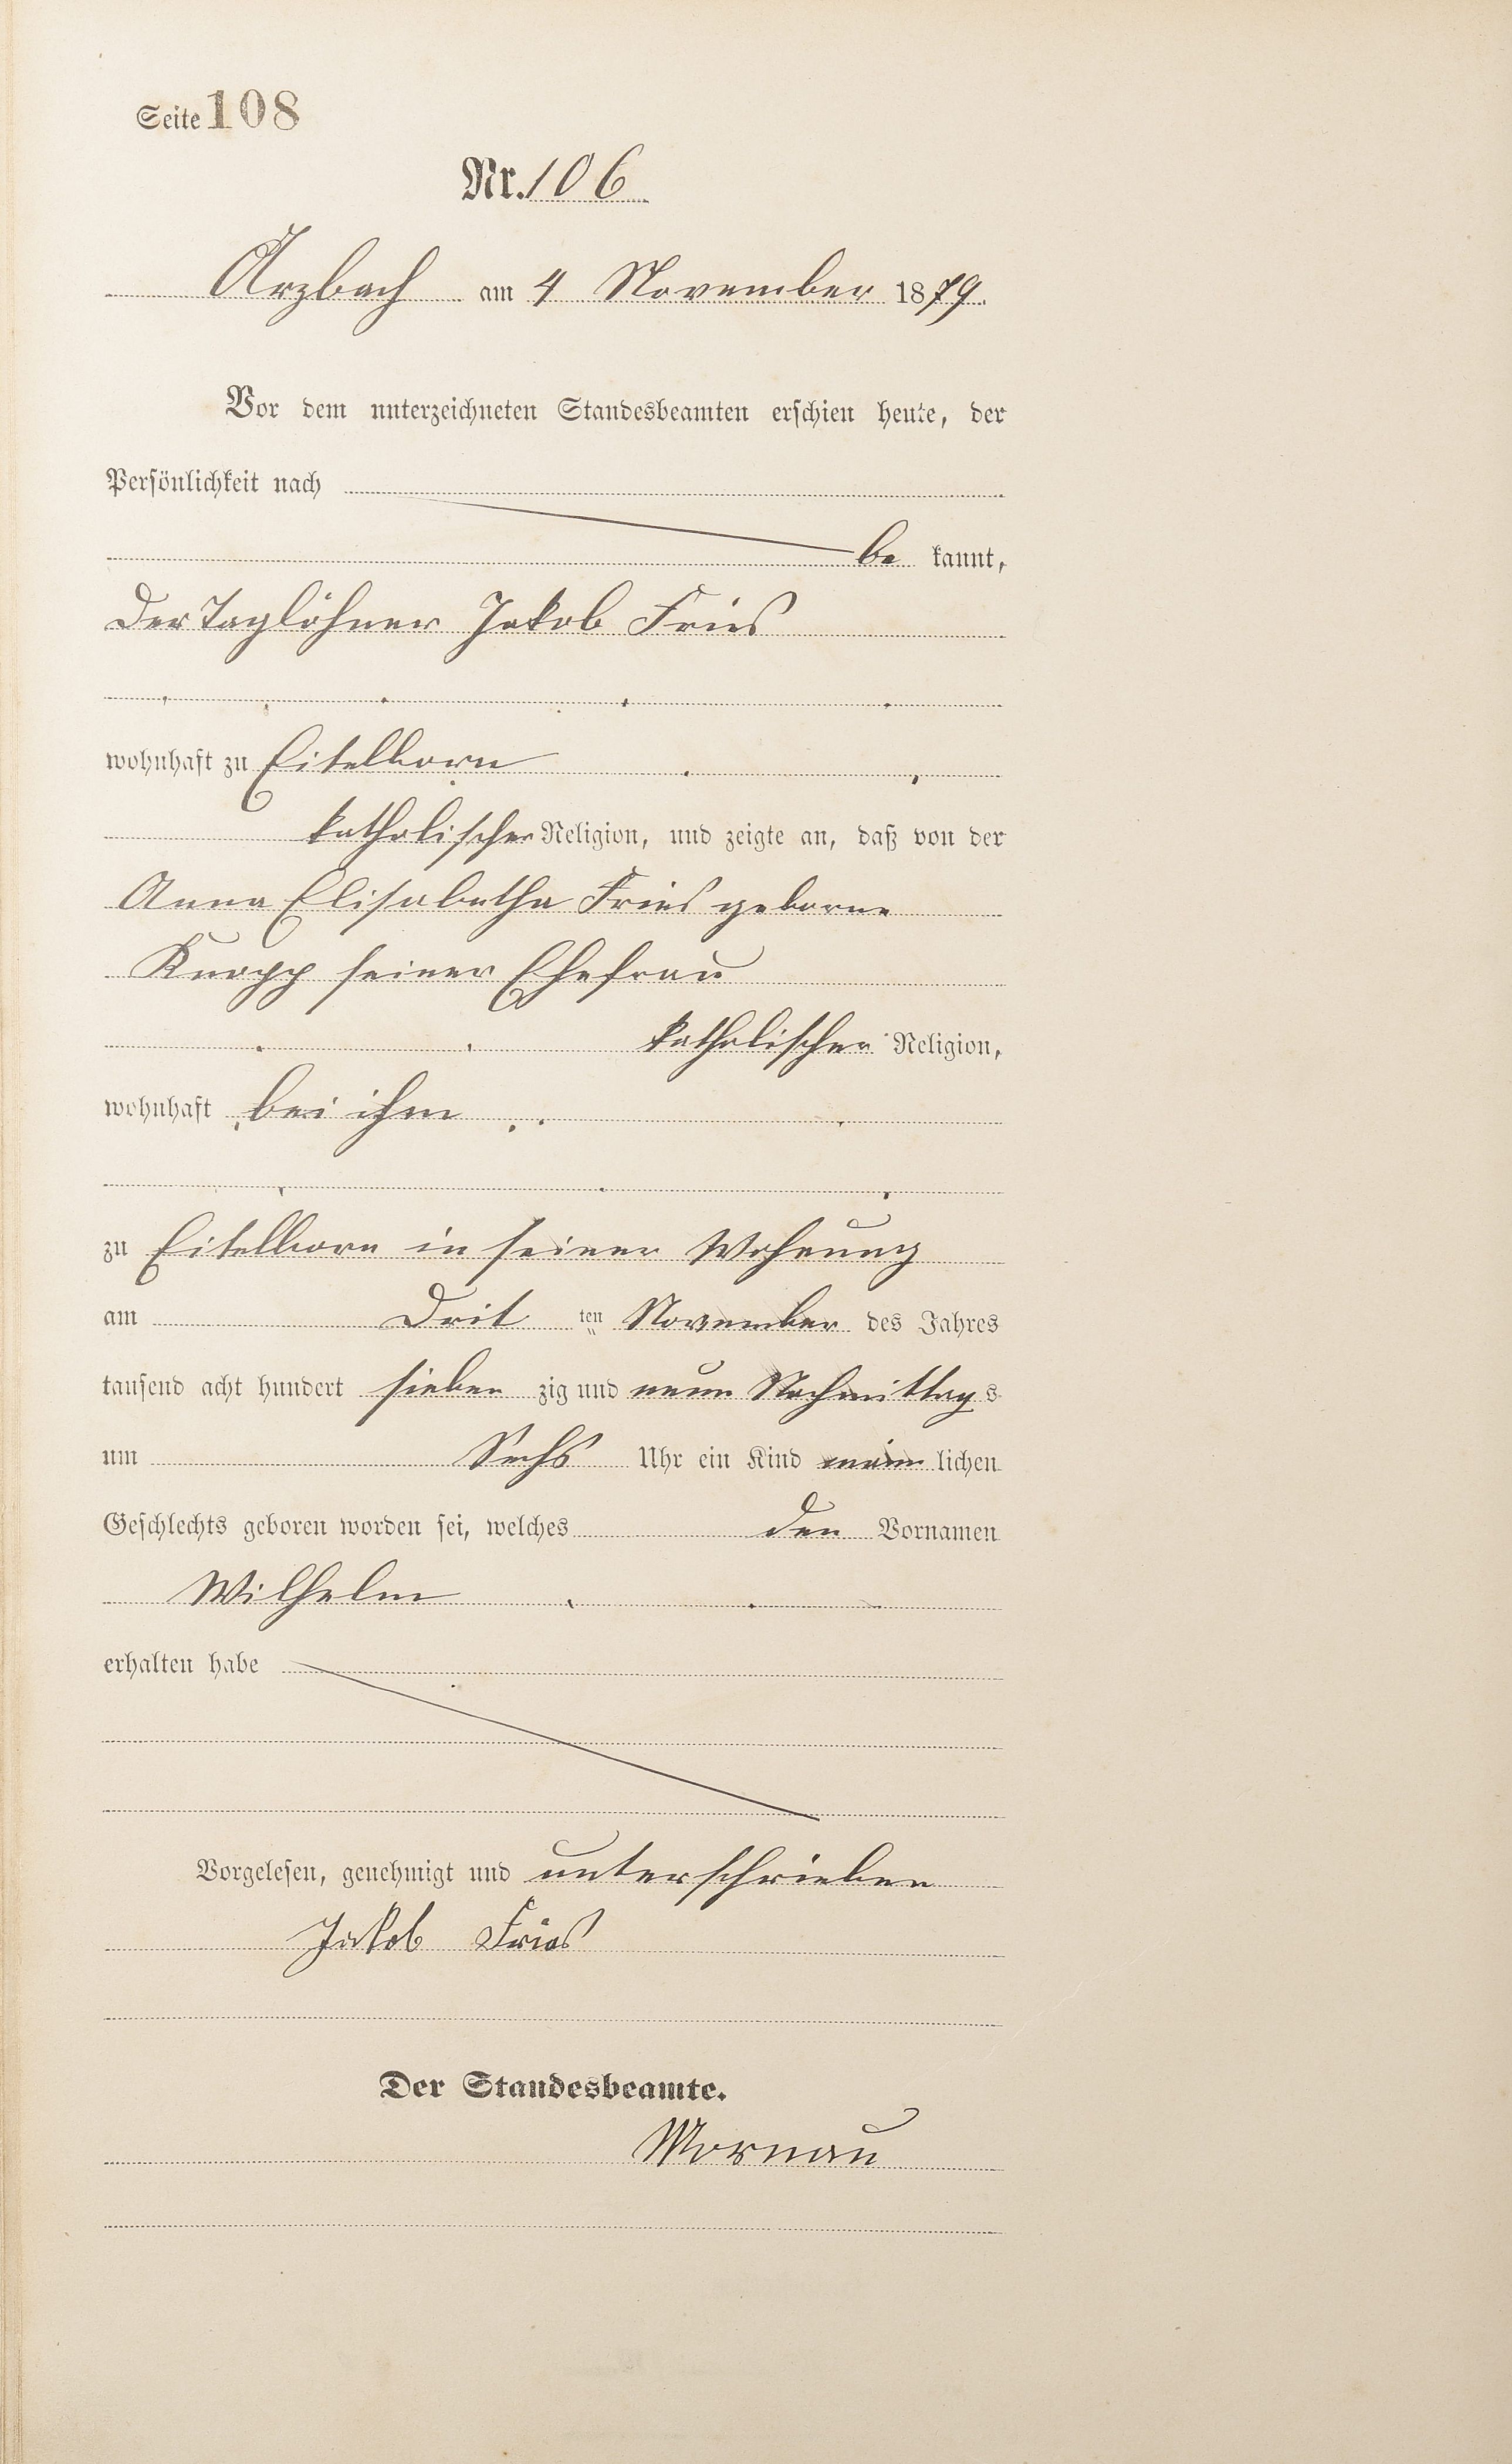 Seite 108
Nr. 106
Arzbach am 4 November 1879.
Vor dem unterzeichneten Standesbeamten erschien heute, der
Persönlichkeit nach
be kannt,
der Taglöhner Jakob Fries
wohnhaft zu Eitelborn
katholischer Religion, und zeigte an, daß von der
Anna Elisabetha Fries geborne
Knopp seiner Ehefrau
katholischer Religion,
wohnhaft bei ihm
zu Eitelborn in seiner Wohnung
am Drit ten November des Jahres
tausend acht hundert sieben zig und neun Nachmittags
um Sechs Uhr ein Kind männ lichen
Geschlechts geboren worden sei, welches den Vornamen
Wilhelm
erhalten habe
Vorgelesen, genehmigt und unterschrieben
Jakob Fries
Der Standesbeamte.
Mornau